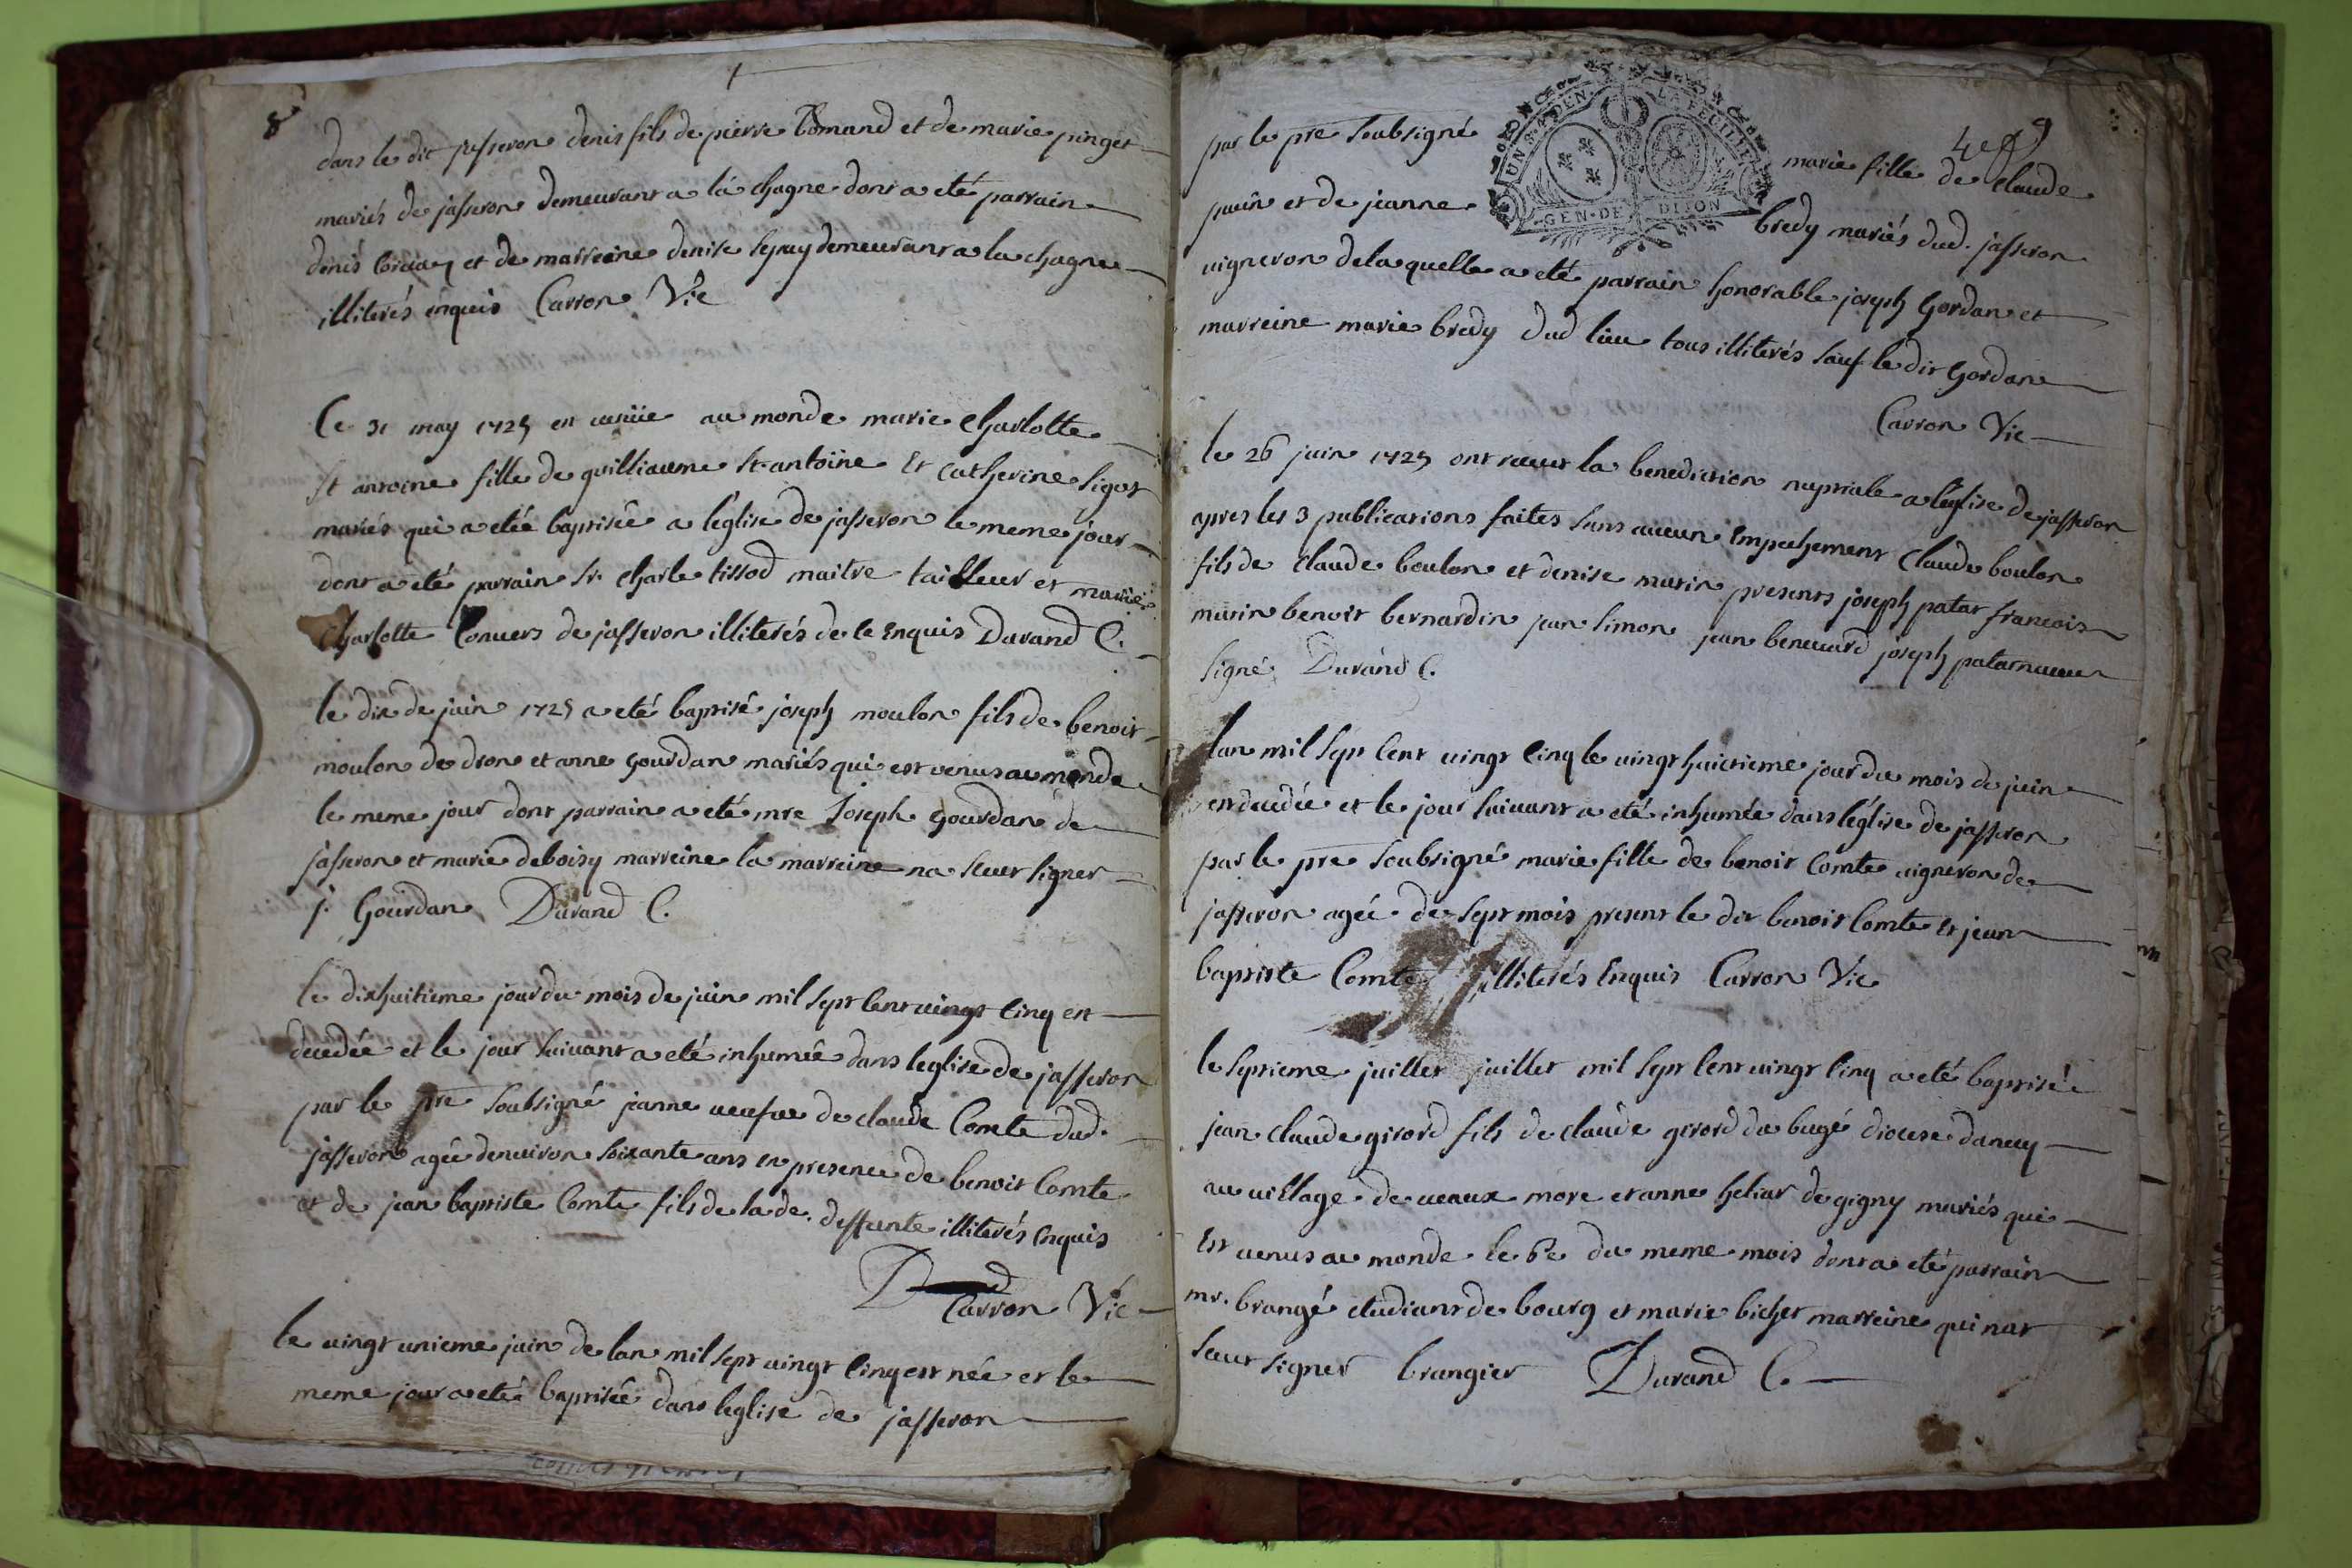 8
dans le dit jasseron denis fils de pierre et de marie pinget
mariés de jasseron demeurant a la chagne dont a eté parrain
denis et de marreine denise demeurant a la chagne
illiterés enquis Carron Vic
Le 31 may 1725 est venüe au monde marie Charlotte
St antoine fille de guilliaume St antoine Et catherine sigot
mariés qui a etée baptisée a leglise de jasseron le meme jour
dont a eté parrain Sr. Charle tissod maitre tailleur et marie
Charlotte Convers de jasseron illiterés de ce Enquis Durand C.
le dix de juin 1725 a eté baptisé joseph moulon fils de benoit
moulon de dron et anne gourdan mariés qui est venus au monde
le meme jour dont parrain a eté mre Joseph gourdan de
jasseron et marie deboisy marreine la marreine na sceut signer
j. Gourdan Durand C.
le dixhuitieme jour du mois de juin mil sept cent vingt cinq est
decedée et le jour suivant a eté inhumée dans leglise de jasseron
par le pre soubsigné jeanne veufve de claude Comte dud.
jasseron agée denviron soixante ans en presence de benoit Comte
et de jean baptiste Comte fils de la de. deffunte illiterés Enquis
Carron Vic
le vingt unieme juin de lan mil sept vingt cinq est née et le
meme jour a etée baptisée dans leglise de jasseron
par le pre soubsigné marie fille de claude
et de jeanne bredy mariés dud. jasseron
vigneron de laquelle a eté parrain honorable joseph Gordan et
marreine marie bredy dud lieu tous illiterés sauf le dit Gordan
Carron Vic
UN S. 4 DEN. LA FEUILLE
GEN. DE DIJON
le 26 juin 1725 ont receut la benediction nuptiale a leglise de jasseron
apres les 3 publications faites sans aucun Empechement Claude boulon
fils de Claude boulon et denise marin presents joseph patar francois
marin benoit bernardin jean simon jean joseph
signé Durand C.
lan mil sept cent vingt cinq le vingt huictieme jour du mois de juin
est decedée et le jour suivant a eté inhumée dans léglise de jasseron
par le pre soubsigné marie fille de benoit Comte vigneron de
jasseron agée de sept mois present le dit benoit Comte Et jean
baptiste Comte illiterés Enquis Carron Vic
le septieme juillet juillet mil sept cent vingt cinq a eté baptisée
jean claude girord fils de claude girord du bugé diocese
au village de veaux more et anne heliar de gigny mariés qui
Est venus au monde le 6e du meme mois dont a eté parrain
mr. brangé etudiant de bourg et marie bichet marreine qui nat
sceut signer brangier Durand C.